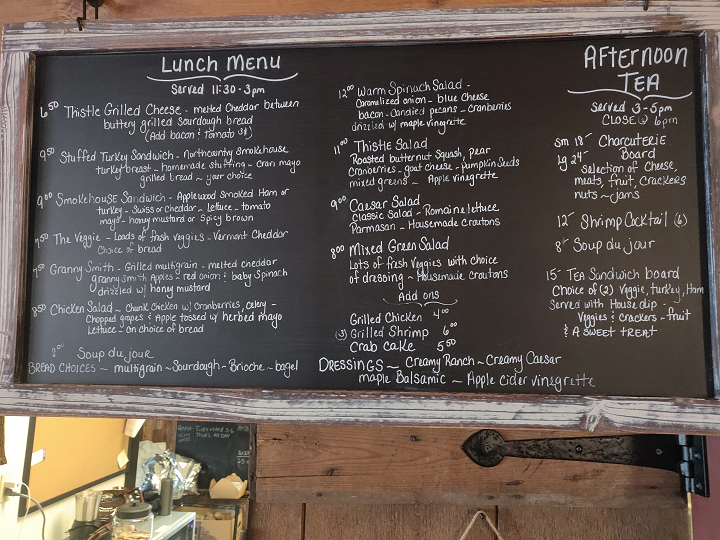 Lunch Menu
Served 11:30-3pm
6.50 Thistle Grilled Cheese - melted Cheddar between
buttery grilled sourdough bread
(Add bacon & tomato $1)
9.50 Stuffed Turkey Sandwich - Northcountry Smokehouse
turkey breast - homemade stuffing - cran mayo
grilled bread - your choice
9.00 Smokehouse Sandwich - Applewood Smoked Ham or
turkey - Swiss or Cheddar - lettuce - tomato
mayo - honey mustard or Spicy brown
7.50 The Veggie - Loads of fresh veggies - Vermont Cheddar
Choice of bread
7.50 Granny Smith - Grilled multigrain - melted cheddar
granny smith Apples - red onion & baby Spinach
drizzled w/ honey mustard
8.50 Chicken Salad - Chunk Chicken w/ Cranberries, celery -
Chopped grapes & Apple tossed w/ herbed mayo
Lettuce - on choice of bread
Soup du jour
BREAD CHOICES ~ multigrain ~ Sourdough - Brioche ~ bagel
12.00 Warm Spinach Salad -
Caramelized onion - blue Cheese
bacon - Candied pecans - Cranberries
drizzled w/ maple vinegrette
11.00 Thistle Salad
Roasted butternut Squash, pear
Cranberries - goat cheese - pumpkin seeds
mixed greens - Apple vinegrette
9.00 Caesar Salad
Classic Salad - Romaine lettuce
Parmasan - Housemade Croutons
8.00 Mixed Green Salad
Lots of fresh Veggies with choice
of dressing - Housemade croutons
Add ons
Grilled Chicken 4.00
(3) Grilled Shrimp 6.00
Crab cake 5.50
DRESSINGS ~ Creamy Ranch ~ Creamy Caesar
maple Balsamic ~ Apple cider vinegrette
AFTERNOON
TEA
Served 3-5pm
CLOSE @ 6pm
sm 18- Charcuterie
lg 24- Board
selection of Cheese,
meats, fruit, crackers
nuts ~ jams
12- Shrimp Cocktail (6)
8- Soup du jour
15- TEA Sandwich board
Choice of (2) Veggie, turkey, Ham
Served with House dip -
Veggies & crackers - fruit
& A SWEET TREAT